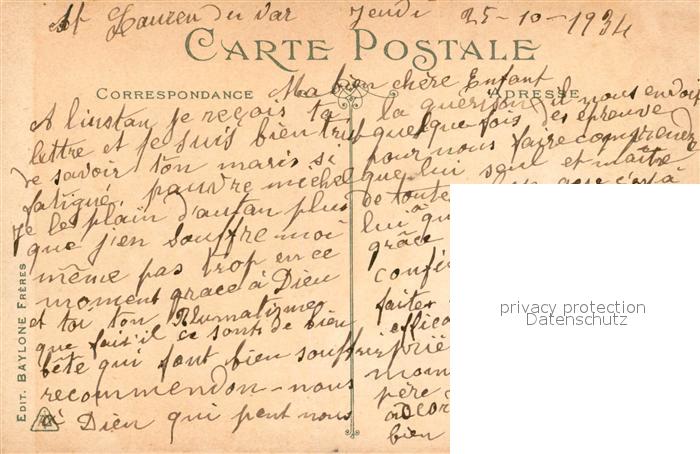 St Lauren du Var Jeudi 25-10-1934
CARTE POSTALE
CORRESPONDANCE
ADRESSE
Ma bien chère Enfant
A linstan je reçois ta
lettre et je suis bien trist
de savoir ton maris si
fatigué, pauvre michel
je les plaïn d'autan plus
que j'en souffre moi
même pas trop en ce
moment grace à Dieu
et toi ton Rhumatizme
que fais'il ce sont de bien
bête qui font bien souffrir
recommendon-nous
à Dieu qui peut nous
la guerison il nous envoi
quelque fois des épreuve
pour nous faire comprendre
que lui seul et maître
de toute
lui à qu
grâce
confi
faiter
effica
prié
mom
père
adcor
bien
EDIT. BAYLONE FRÈRES
privacy protection
Datenschutz